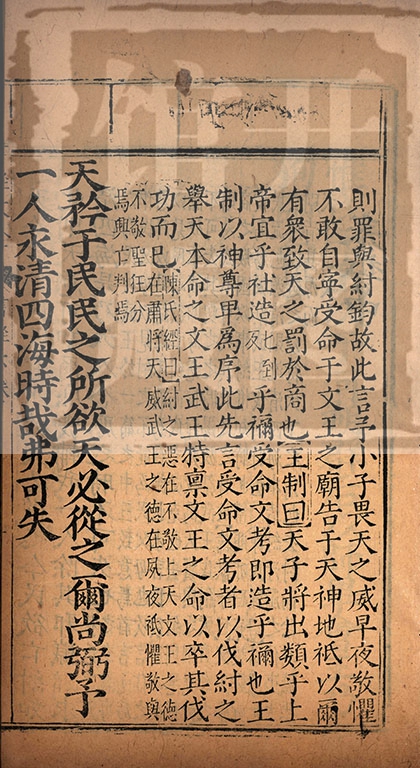 則罪與紂鈞故此言予小子畏天之威早夜敬懼
不敢自寧受命于文王之廟告于天神地祇以爾
有衆致天之罰於商也王制曰天子將出類乎上
帝宜乎社造七到反乎禰受命文考即造乎禰也王
制以神尊卑爲序此先言受命文考者以伐紂之
舉天本命之文王武王特禀文王之命以卒其伐
功而已陳氏經曰紂之惡在不敬上天文王之德在肅將天威武王之德在夙夜祗懼敬與
不敬聖狂分焉興亡判焉
天矜于民民之所欲天必從之爾尚弼予
一人永清四海時哉弗可失